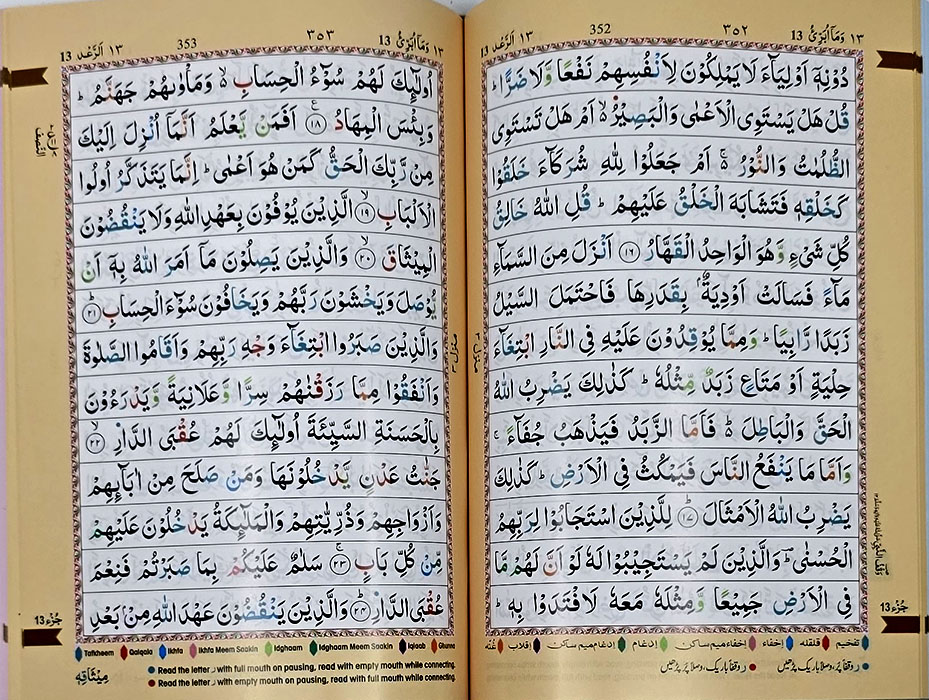 ١٣ وَمَآ اُبَرِّئُ 13
٣٥٢
352
١٣ اَلرَّعْد 13
دُوْنِهٖٓ اَوْلِيَآءَ لَا يَمْلِكُوْنَ لِاَنْفُسِهِمْ نَفْعًا وَّلَا ضَرًّا ؕ
قُلْ هَلْ يَسْتَوِى الْاَعْمٰى وَالْبَصِيْرُ ۙ اَمْ هَلْ تَسْتَوِى
الظُّلُمٰتُ وَالنُّوْرُ ۚ اَمْ جَعَلُوْا لِلّٰهِ شُرَكَآءَ خَلَقُوْا
كَخَلْقِهٖ فَتَشَابَهَ الْخَلْقُ عَلَيْهِمْ ؕ قُلِ اللّٰهُ خَالِقُ
كُلِّ شَىْءٍ وَّهُوَ الْوَاحِدُ الْقَهَّارُ ﴿١٦﴾ اَنْزَلَ مِنَ السَّمَآءِ
مَآءً فَسَالَتْ اَوْدِيَةٌۢ بِقَدَرِهَا فَاحْتَمَلَ السَّيْلُ
زَبَدًا رَّابِيًا ؕ وَمِمَّا يُوْقِدُوْنَ عَلَيْهِ فِى النَّارِ ابْتِغَآءَ
حِلْيَةٍ اَوْ مَتَاعٍ زَبَدٌ مِّثْلُهٗ ؕ كَذٰلِكَ يَضْرِبُ اللّٰهُ
الْحَقَّ وَالْبَاطِلَ ؕ فَاَمَّا الزَّبَدُ فَيَذْهَبُ جُفَآءً ۚ
وَاَمَّا مَا يَنْفَعُ النَّاسَ فَيَمْكُثُ فِى الْاَرْضِ ؕ كَذٰلِكَ
يَضْرِبُ اللّٰهُ الْاَمْثَالَ ؕ ﴿١٧﴾ لِلَّذِيْنَ اسْتَجَابُوْا لِرَبِّهِمُ
الْحُسْنٰى ؔ وَالَّذِيْنَ لَمْ يَسْتَجِيْبُوْا لَهٗ لَوْ اَنَّ لَهُمْ مَّا
فِى الْاَرْضِ جَمِيْعًا وَّمِثْلَهٗ مَعَهٗ لَافْتَدَوْا بِهٖ ؕ
جُزْء 13
تفخیم قلقله إخفاء إخفاءمیم‌ساکن إدغام إدغام‌میم‌ساکن إقلاب غنّه
١٣ وَمَآ اُبَرِّئُ 13
٣٥٣
353
١٣ اَلرَّعْد 13
اُولٰٓئِكَ لَهُمْ سُوْٓءُ الْحِسَابِ ۙ وَمَاْوٰىهُمْ جَهَنَّمُ ؕ
وَبِئْسَ الْمِهَادُ ﴿١٨﴾ اَفَمَنْ يَّعْلَمُ اَنَّمَآ اُنْزِلَ اِلَيْكَ
مِنْ رَّبِّكَ الْحَقُّ كَمَنْ هُوَ اَعْمٰى ؕ اِنَّمَا يَتَذَكَّرُ اُولُوا
الْاَلْبَابِ ۙ ﴿١٩﴾ الَّذِيْنَ يُوْفُوْنَ بِعَهْدِ اللّٰهِ وَلَا يَنْقُضُوْنَ
الْمِيْثَاقَ ۙ ﴿٢٠﴾ وَالَّذِيْنَ يَصِلُوْنَ مَآ اَمَرَ اللّٰهُ بِهٖٓ اَنْ
يُّوْصَلَ وَيَخْشَوْنَ رَبَّهُمْ وَيَخَافُوْنَ سُوْٓءَ الْحِسَابِ ؕ ﴿٢١﴾
وَالَّذِيْنَ صَبَرُوا ابْتِغَآءَ وَجْهِ رَبِّهِمْ وَاَقَامُوا الصَّلٰوةَ
وَاَنْفَقُوْا مِمَّا رَزَقْنٰهُمْ سِرًّا وَّعَلَانِيَةً وَّيَدْرَءُوْنَ
بِالْحَسَنَةِ السَّيِّئَةَ اُولٰٓئِكَ لَهُمْ عُقْبَى الدَّارِ ۙ ﴿٢٢﴾
جَنّٰتُ عَدْنٍ يَّدْخُلُوْنَهَا وَمَنْ صَلَحَ مِنْ اٰبَآئِهِمْ
وَاَزْوَاجِهِمْ وَذُرِّيّٰتِهِمْ وَالْمَلٰٓئِكَةُ يَدْخُلُوْنَ عَلَيْهِمْ
مِّنْ كُلِّ بَابٍ ۚ ﴿٢٣﴾ سَلٰمٌ عَلَيْكُمْ بِمَا صَبَرْتُمْ فَنِعْمَ
عُقْبَى الدَّارِ ؕ ﴿٢٤﴾ وَالَّذِيْنَ يَنْقُضُوْنَ عَهْدَ اللّٰهِ مِنْۢ بَعْدِ
جُزْء 13
Tafkheem Qalqala Ikhfa Ikhfa Meem Saakin Idghaam Idghaam Meem Saakin Iqlaab Ghunna
Read the letter ر with full mouth on pausing, read with empty mouth while connecting.
Read the letter ر with empty mouth on pausing, read with full mouth while connecting.
مِيْثَاقِهٖ